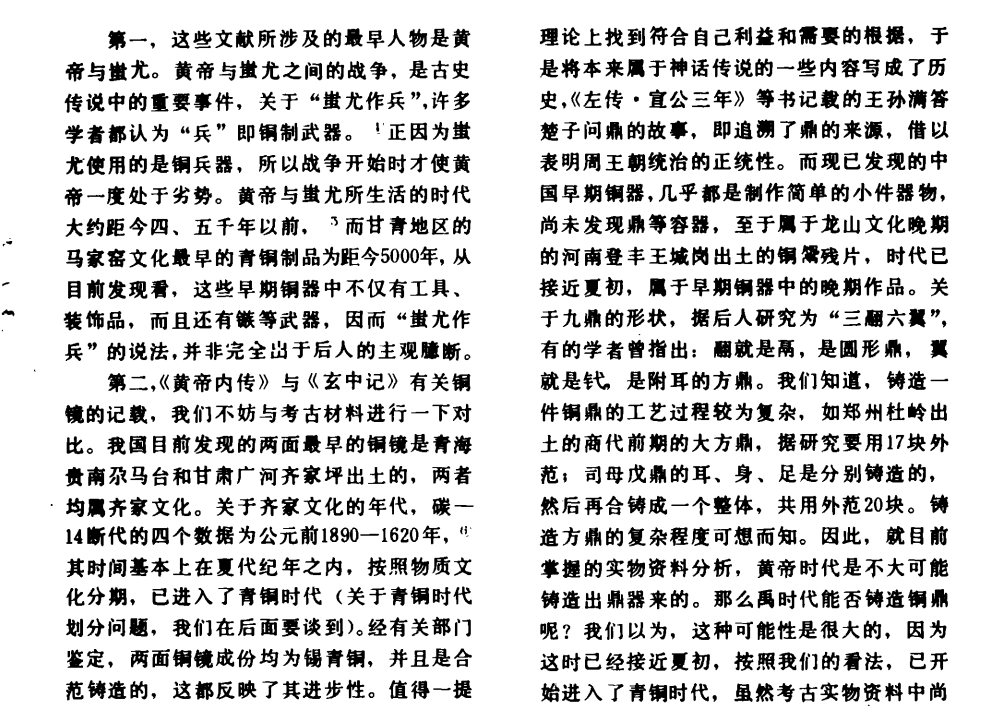 第一，这些文献所涉及的最早人物是黄
帝与蚩尤。黄帝与蚩尤之间的战争，是古史
传说中的重要事件，关于“蚩尤作兵”,许多
学者都认为“兵”即铜制武器。正因为蚩
尤使用的是铜兵器，所以战争开始时才使黄
帝一度处于劣势。黄帝与蚩尤所生活的时代
大约距今四、五千年以前，而甘青地区的
马家窑文化最早的青铜制品为距今5000年，从
目前发现看，这些早期铜器中不仅有工具、
装饰品，而且还有镞等武器，因而“蚩尤作
兵”的说法,并非完全出于后人的主观臆断。
第二,《黄帝内传》与《玄中记》有关铜
镜的记载，我们不妨与考古材料进行一下对
比。我国目前发现的两面最早的铜镜是青海
贵南尕马台和甘肃广河齐家坪出土的，两者
均属齐家文化。关于齐家文化的年代，碳—
14断代的四个数据为公元前1890—1620年，
其时间基本上在夏代纪年之内，按照物质文
化分期，已进入了青铜时代（关于青铜时代
划分问题，我们在后面要谈到）。经有关部门
鉴定，两面铜镜成份均为锡青铜，并且是合
范铸造的，这都反映了其进步性。值得一提
理论上找到符合自己利益和需要的根据，于
是将本来属于神话传说的一些内容写成了历
史,《左传·宣公三年》等书记载的王孙满答
楚子问鼎的故事，即追溯了鼎的来源，借以
表明周王朝统治的正统性。而现已发现的中
国早期铜器,几乎都是制作简单的小件器物，
尚未发现鼎等容器，至于属于龙山文化晚期
的河南登丰王城岗出土的铜残片，时代已
接近夏初，属于早期铜器中的晚期作品。关
于九鼎的形状，据后人研究为“三翮六翼”，
有的学者曾指出：翮就是鬲，是圆形鼎，翼
就是釴，是附耳的方鼎。我们知道，铸造一
件铜鼎的工艺过程较为复杂，如郑州杜岭出
土的商代前期的大方鼎，据研究要用17块外
范；司母戊鼎的耳、身、足是分别铸造的，
然后再合铸成一个整体，共用外范20块。铸
造方鼎的复杂程度可想而知。因此，就目前
掌握的实物资料分析，黄帝时代是不大可能
铸造出鼎器来的。那么禹时代能否铸造铜鼎
呢？我们以为，这种可能性是很大的，因为
这时已经接近夏初，按照我们的看法，已开
始进入了青铜时代，虽然考古实物资料中尚